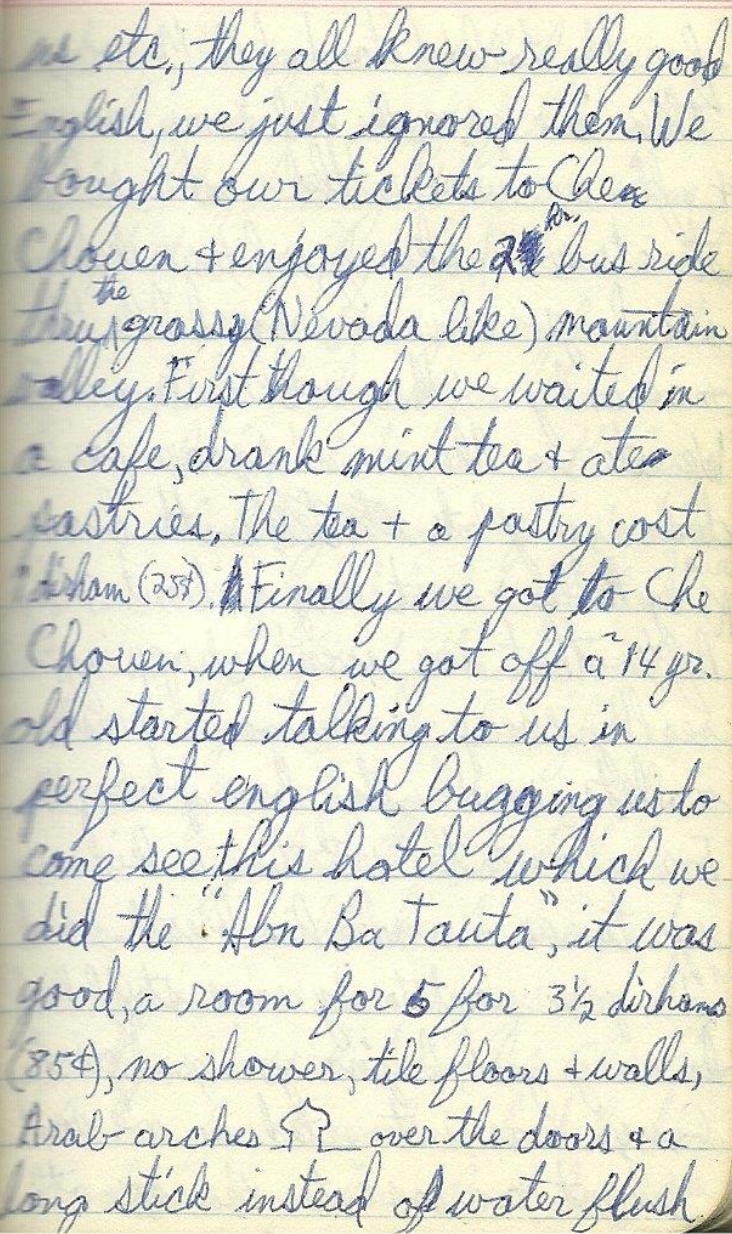 etc., they all knew really good
English, we just ignored them. We
bought our tickets to Che
Chouen + enjoyed the 2 hr. bus ride
thru the grassy (Nevada like) mountain
valley. First though we waited in
a cafe, drank mint tea + ate
pastries. The tea + a pastry cost
1 dirham (25¢). Finally we got to Che
Chouen, when we got off a 14 yr.
old started talking to us in
perfect english bugging us to
come see this hotel which we
did the "Abn Ba Tauta", it was
good, a room for 5 for 3½ dirhams
(85¢), no shower, tile floors + walls,
Arab arches over the doors + a
long stick instead of water flush